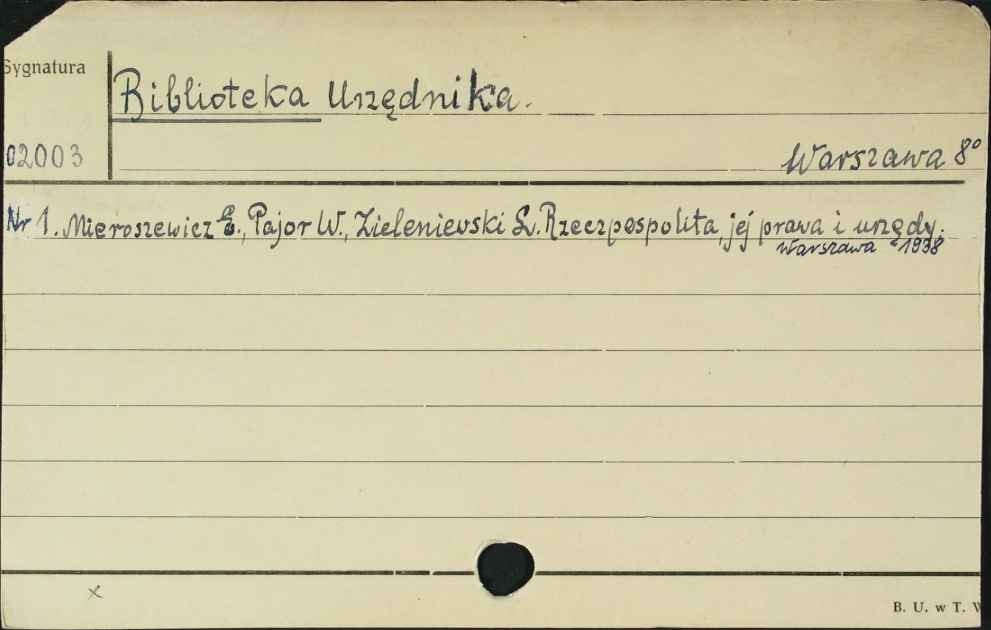 Sygnatura
Biblioteka Urzędnika.
02003
Warszawa 8°
Nr 1. Mieroszewicz E., Pajor W., Zieleniewski L. Rzeczpospolita, jej prawa i urzędy.
Warszawa 1938
x
B. U. w T.